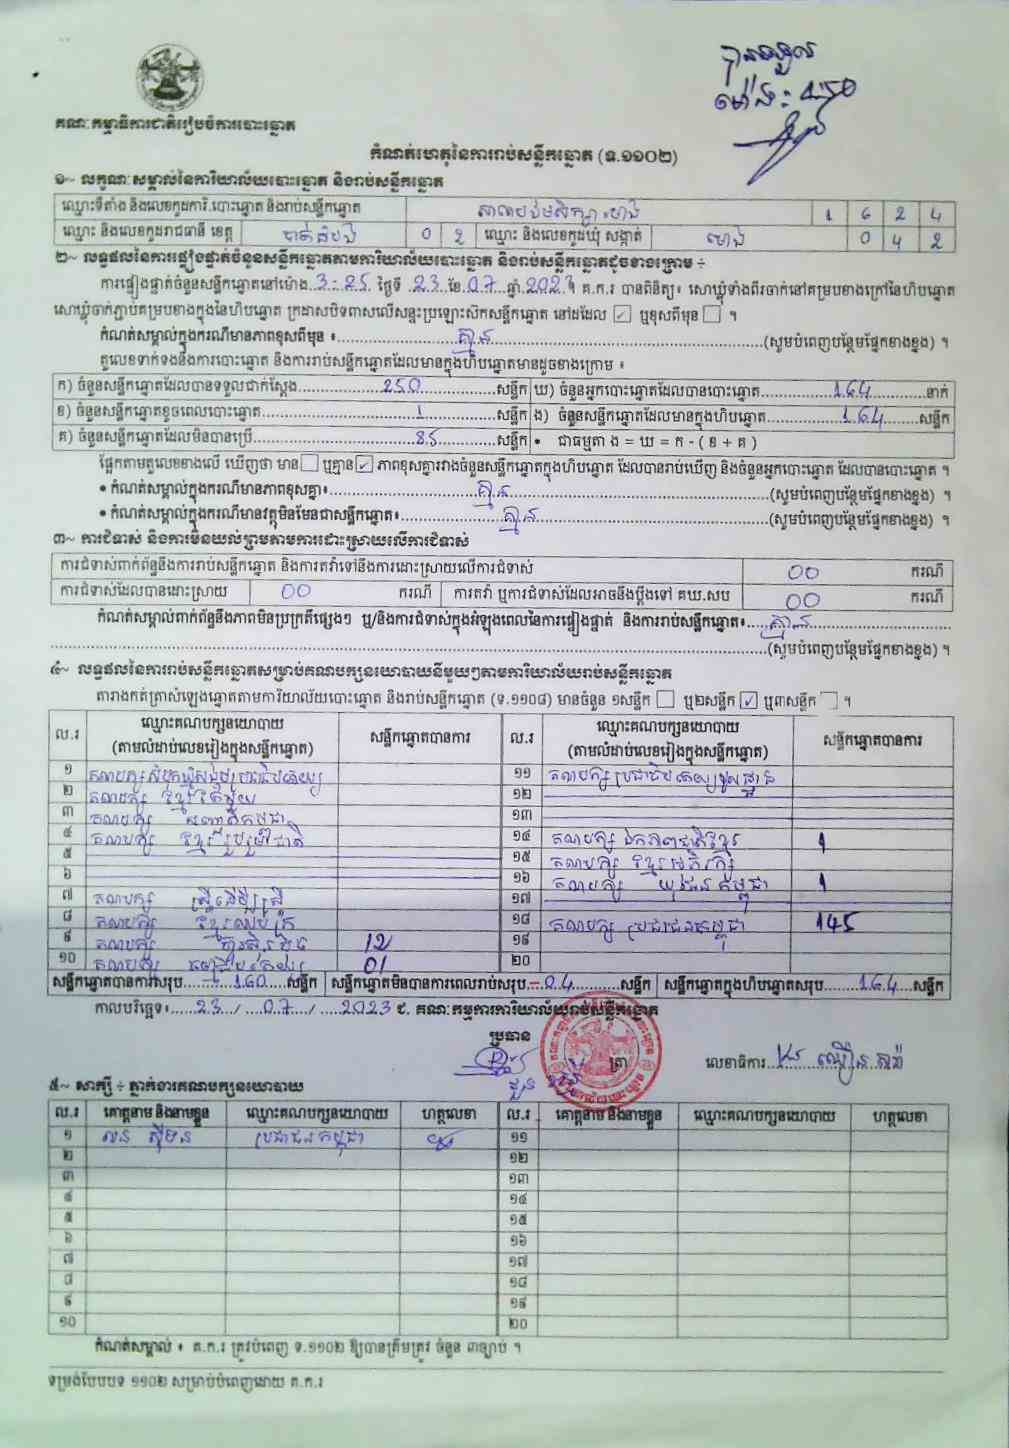 បានទទួល
ម៉ោង: ៤:៥០
គណៈកម្មាធិការជាតិរៀបចំការបោះឆ្នោត
កំណត់ហេតុនៃការរាប់សន្លឹកឆ្នោត (ទ.១១០២)
១~ លក្ខណៈសម្គាល់នៃការិយាល័យបោះឆ្នោត និងរាប់សន្លឹកឆ្នោត
ឈ្មោះទីតាំង និងលេខកូដការិ.បោះឆ្នោត និងរាប់សន្លឹកឆ្នោត 1 6 2 4
ឈ្មោះ និងលេខកូដរាជធានី ខេត្ត បាត់ដំបង 0 2 ឈ្មោះ និងលេខកូដឃុំ សង្កាត់ 0 4 2
២~ លទ្ធផលនៃការផ្ទៀងផ្ទាត់ចំនួនសន្លឹកឆ្នោតតាមការិយាល័យបោះឆ្នោត និងរាប់សន្លឹកឆ្នោតដូចខាងក្រោម ÷
ការផ្ទៀងផ្ទាត់ចំនួនសន្លឹកឆ្នោតនៅម៉ោង 3-25 ថ្ងៃទី 23 ខែ 07 ឆ្នាំ 2023 ។ គ.ក.រ បានពិនិត្យ៖ សោឃ្លុំទាំងពីរចាក់នៅគម្របខាងក្រៅនៃហិបឆ្នោត
សោឃ្លុំចាក់ភ្ជាប់គម្របខាងក្នុងនៃហិបឆ្នោត ក្រដាសបិទពាសលើសន្ទះប្រឡោះស៊កសន្លឹកឆ្នោត នៅដដែល ☑ ឬខុសពីមុន ☐ ។
កំណត់សម្គាល់ក្នុងករណីមានភាពខុសពីមុន ៖ គ្មាន (សូមបំពេញបន្ថែមផ្នែកខាងខ្នង) ។
តួលេខទាក់ទងនឹងការបោះឆ្នោត និងការរាប់សន្លឹកឆ្នោតដែលមានក្នុងហិបឆ្នោតមានដូចខាងក្រោម ៖
ក) ចំនួនសន្លឹកឆ្នោតដែលបានទទួលជាក់ស្តែង 250 សន្លឹក ឃ) ចំនួនអ្នកបោះឆ្នោតដែលបានបោះឆ្នោត 164 នាក់
ខ) ចំនួនសន្លឹកឆ្នោតខូចពេលបោះឆ្នោត 1 សន្លឹក ង) ចំនួនសន្លឹកឆ្នោតដែលមានក្នុងហិបឆ្នោត 164 សន្លឹក
គ) ចំនួនសន្លឹកឆ្នោតដែលមិនបានប្រើ 85 សន្លឹក • ជាធម្មតា ង = ឃ = ក - ( ខ + គ )
ផ្អែកតាមតួលេខខាងលើ ឃើញថា មាន ☐ ឬគ្មាន ☑ ភាពខុសគ្នារវាងចំនួនសន្លឹកឆ្នោតក្នុងហិបឆ្នោត ដែលបានរាប់ឃើញ និងចំនួនអ្នកបោះឆ្នោត ដែលបានបោះឆ្នោត ។
• កំណត់សម្គាល់ក្នុងករណីមានភាពខុសគ្នា៖ គ្មាន (សូមបំពេញបន្ថែមផ្នែកខាងខ្នង) ។
• កំណត់សម្គាល់ក្នុងករណីមានវត្ថុមិនមែនជាសន្លឹកឆ្នោត៖ គ្មាន (សូមបំពេញបន្ថែមផ្នែកខាងខ្នង) ។
៣~ ការជំទាស់ និងការមិនយល់ព្រមតាមការដោះស្រាយលើការជំទាស់
ការជំទាស់ពាក់ព័ន្ធនឹងការរាប់សន្លឹកឆ្នោត និងការតវ៉ាទៅនឹងការដោះស្រាយលើការជំទាស់ 00 ករណី
ការជំទាស់ដែលបានដោះស្រាយ 00 ករណី ការតវ៉ា ឬការជំទាស់ដែលអាចនឹងប្តឹងទៅ គឃ.សប 00 ករណី
កំណត់សម្គាល់ពាក់ព័ន្ធនឹងភាពមិនប្រក្រតីផ្សេងៗ ឬ/និងការជំទាស់ក្នុងអំឡុងពេលនៃការផ្ទៀងផ្ទាត់ និងការរាប់សន្លឹកឆ្នោត៖ គ្មាន
(សូមបំពេញបន្ថែមផ្នែកខាងខ្នង) ។
៤~ លទ្ធផលនៃការរាប់សន្លឹកឆ្នោតសម្រាប់គណបក្សនយោបាយនីមួយៗតាមការិយាល័យរាប់សន្លឹកឆ្នោត
តារាងកត់ត្រាសំឡេងឆ្នោតតាមការិយាល័យបោះឆ្នោត និងរាប់សន្លឹកឆ្នោត (ទ.១១០៨) មានចំនួន ១សន្លឹក ☐ ឬ២សន្លឹក ☑ ឬ៣សន្លឹក ☐ ។
ល.រ ឈ្មោះគណបក្សនយោបាយ (តាមលំដាប់លេខរៀងក្នុងសន្លឹកឆ្នោត) សន្លឹកឆ្នោតបានការ ល.រ ឈ្មោះគណបក្សនយោបាយ (តាមលំដាប់លេខរៀងក្នុងសន្លឹកឆ្នោត) សន្លឹកឆ្នោតបានការ
១ គណបក្សសំបុកឃ្មុំសង្គមប្រជាធិបតេយ្យ ១១ គណបក្សប្រជាធិបតេយ្យមូលដ្ឋាន
២ គណបក្ស ខ្មែរតែមួយ ១២
៣ គណបក្ស សញ្ជាតិកម្ពុជា ១៣
៤ គណបក្ស ខ្មែររួបរួមជាតិ ១៤ គណបក្ស ឯកភាពជាតិខ្មែរ 1
៥ ១៥ គណបក្ស ខ្មែរអភិរក្ស
៦ ១៦ គណបក្ស យុវជនកម្ពុជា 1
៧ គណបក្ស ស្ត្រីដើម្បីស្ត្រី ១៧
៨ គណបក្ស ខ្មែរឈប់ក្រ ១៨ គណបក្ស ប្រជាជនកម្ពុជា 145
៩ គណបក្ស ហ្វ៊ុនស៊ិនប៉ិច 12 ១៩
១០ គណបក្ស កម្លាំងប្រជាធិបតេយ្យ 01 ២០
សន្លឹកឆ្នោតបានការសរុប 160 សន្លឹក សន្លឹកឆ្នោតមិនបានការពេលរាប់សរុប 04 សន្លឹក សន្លឹកឆ្នោតក្នុងហិបឆ្នោតសរុប 164 សន្លឹក
កាលបរិច្ឆេទ៖ 23 / 07 / 2023 ជ. គណៈកម្មការការិយាល័យរាប់សន្លឹកឆ្នោត
ប្រធាន
ត្រា លេខាធិការ
៥~ សាក្សី ÷ ភ្នាក់ងារគណបក្សនយោបាយ
ល.រ គោត្តនាម និងនាមខ្លួន ឈ្មោះគណបក្សនយោបាយ ហត្ថលេខា ល.រ គោត្តនាម និងនាមខ្លួន ឈ្មោះគណបក្សនយោបាយ ហត្ថលេខា
១ ប្រជាជនកម្ពុជា ១១
២ ១២
៣ ១៣
៤ ១៤
៥ ១៥
៦ ១៦
៧ ១៧
៨ ១៨
៩ ១៩
១០ ២០
កំណត់សម្គាល់ ៖ គ.ក.រ ត្រូវបំពេញ ទ.១១០២ ឱ្យបានត្រឹមត្រូវ ចំនួន ៣ច្បាប់ ។
ទម្រង់បែបបទ ១១០២ សម្រាប់បំពេញដោយ គ.ក.រ